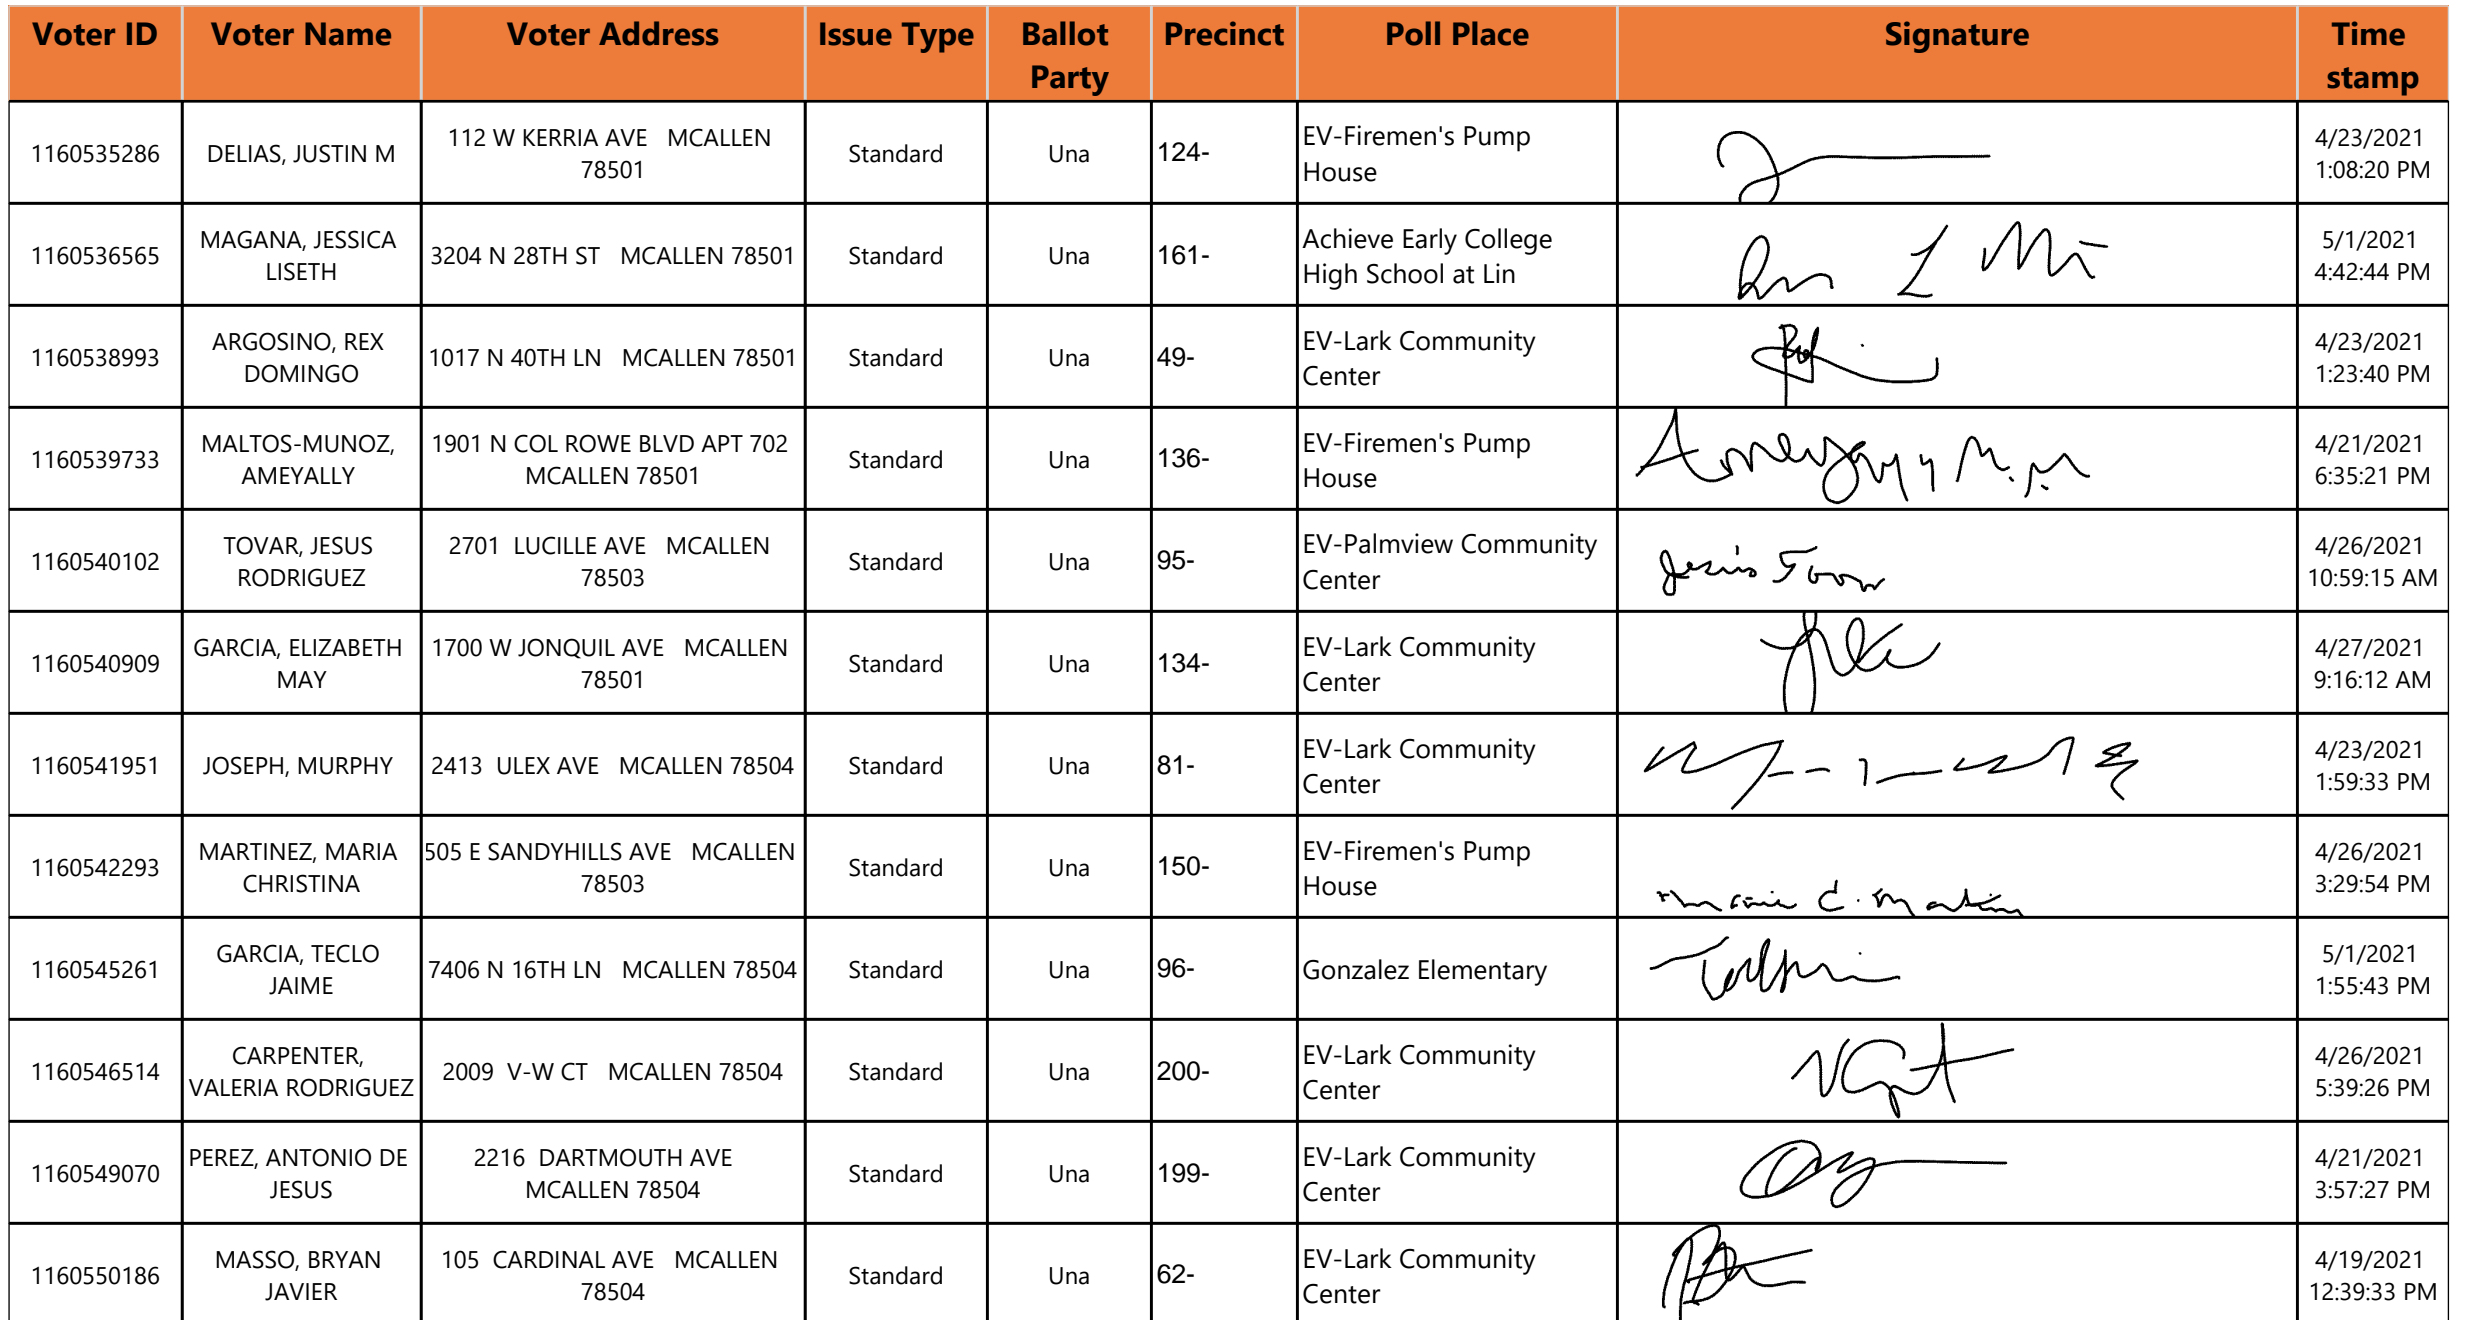 Voter ID Voter Name Voter Address Issue Type Ballot Party Precinct Poll Place Signature Time stamp
1160535286 DELIAS, JUSTIN M 112 W KERRIA AVE MCALLEN 78501 Standard Una 124- EV-Firemen's Pump House 4/23/2021 1:08:20 PM
1160536565 MAGANA, JESSICA LISETH 3204 N 28TH ST MCALLEN 78501 Standard Una 161- Achieve Early College High School at Lin 5/1/2021 4:42:44 PM
1160538993 ARGOSINO, REX DOMINGO 1017 N 40TH LN MCALLEN 78501 Standard Una 49- EV-Lark Community Center 4/23/2021 1:23:40 PM
1160539733 MALTOS-MUNOZ, AMEYALLY 1901 N COL ROWE BLVD APT 702 MCALLEN 78501 Standard Una 136- EV-Firemen's Pump House 4/21/2021 6:35:21 PM
1160540102 TOVAR, JESUS RODRIGUEZ 2701 LUCILLE AVE MCALLEN 78503 Standard Una 95- EV-Palmview Community Center Jesus Tovar 4/26/2021 10:59:15 AM
1160540909 GARCIA, ELIZABETH MAY 1700 W JONQUIL AVE MCALLEN 78501 Standard Una 134- EV-Lark Community Center 4/27/2021 9:16:12 AM
1160541951 JOSEPH, MURPHY 2413 ULEX AVE MCALLEN 78504 Standard Una 81- EV-Lark Community Center 4/23/2021 1:59:33 PM
1160542293 MARTINEZ, MARIA CHRISTINA 505 E SANDYHILLS AVE MCALLEN 78503 Standard Una 150- EV-Firemen's Pump House 4/26/2021 3:29:54 PM
1160545261 GARCIA, TECLO JAIME 7406 N 16TH LN MCALLEN 78504 Standard Una 96- Gonzalez Elementary 5/1/2021 1:55:43 PM
1160546514 CARPENTER, VALERIA RODRIGUEZ 2009 V-W CT MCALLEN 78504 Standard Una 200- EV-Lark Community Center 4/26/2021 5:39:26 PM
1160549070 PEREZ, ANTONIO DE JESUS 2216 DARTMOUTH AVE MCALLEN 78504 Standard Una 199- EV-Lark Community Center 4/21/2021 3:57:27 PM
1160550186 MASSO, BRYAN JAVIER 105 CARDINAL AVE MCALLEN 78504 Standard Una 62- EV-Lark Community Center 4/19/2021 12:39:33 PM